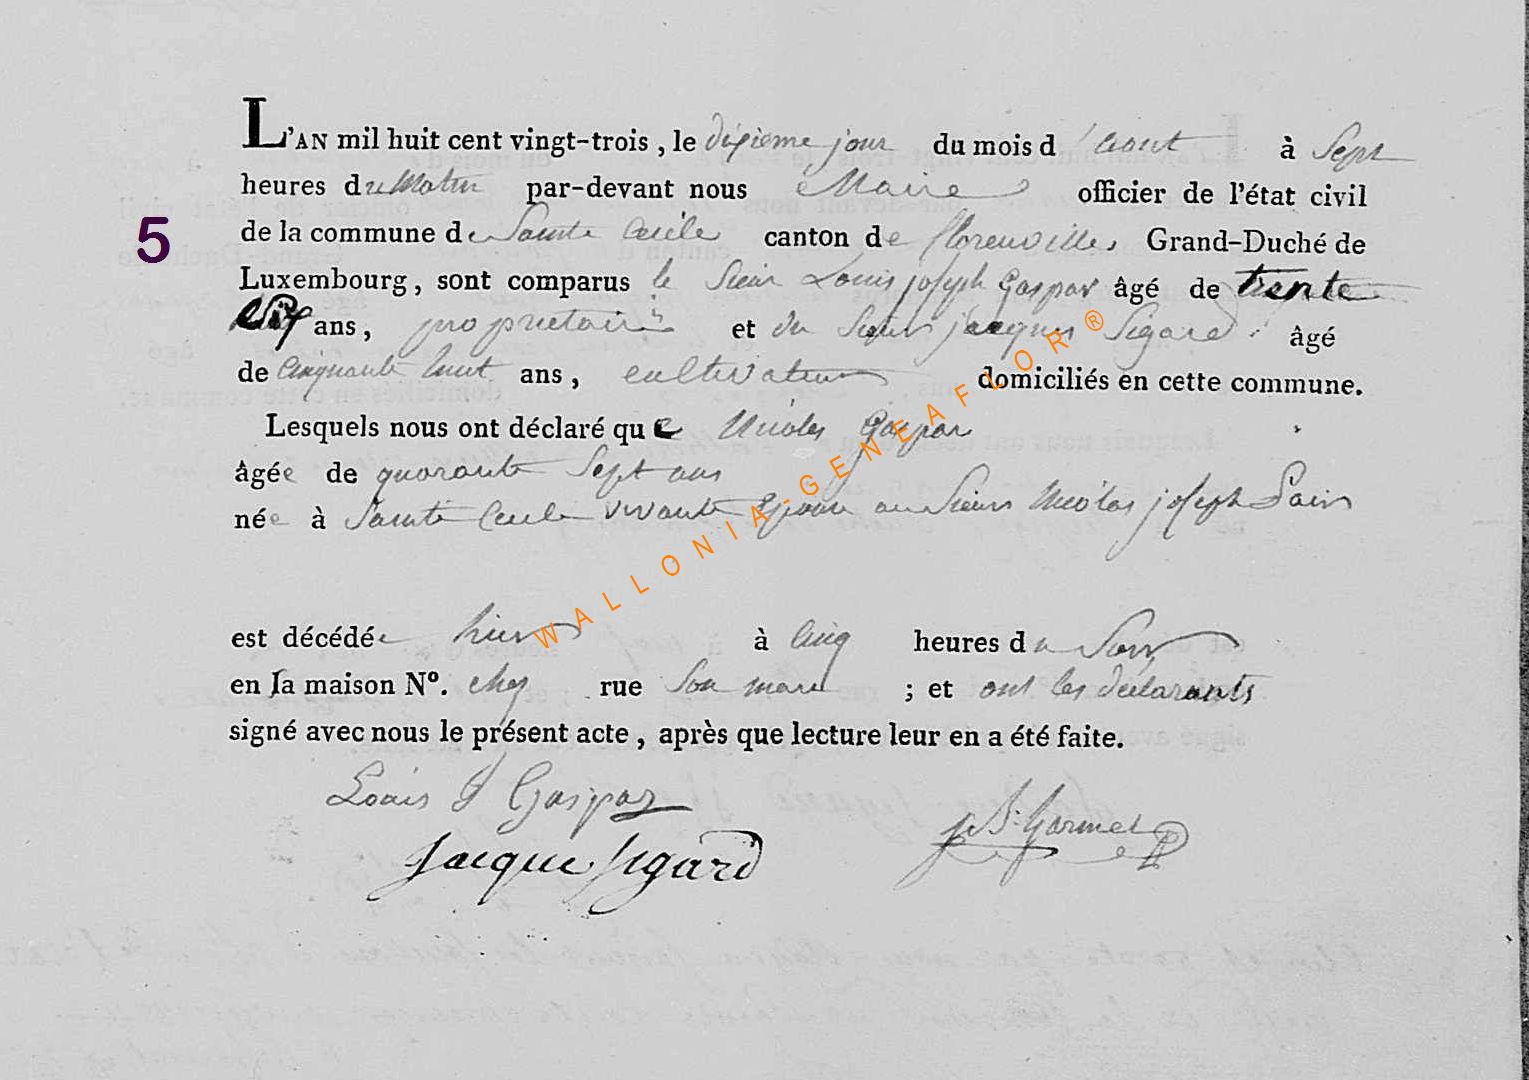 L'AN mil huit cent vingt-trois, le dixieme jour du mois d'aout à Sept
heures du Matin par-devant nous Maire officier de l'état civil
5
de la commune de Sainte Cecile canton de florenville Grand-Duché de
Luxembourg, sont comparus le Sieur Louis joseph Gaspar âgé de trente
ans, proprietaire et du Sieur jacques Sigard âgé
de Cinquante huit ans, cultivateur domiciliés en cette commune.
Lesquels nous ont déclaré que Gaspar
âgée de quarante Sept ans
née à Sainte Cecile vivante Epouse au Sieur Nicolas joseph
est décédée hier à Cinq heures du Soir
en sa maison N°. chez rue Son mari ; et ont les déclarants
signé avec nous le présent acte, après que lecture leur en a été faite.
Louis J Gaspar
jB. Gormet
Jacque Sigard
WALLONIA-GENEAFLOR®